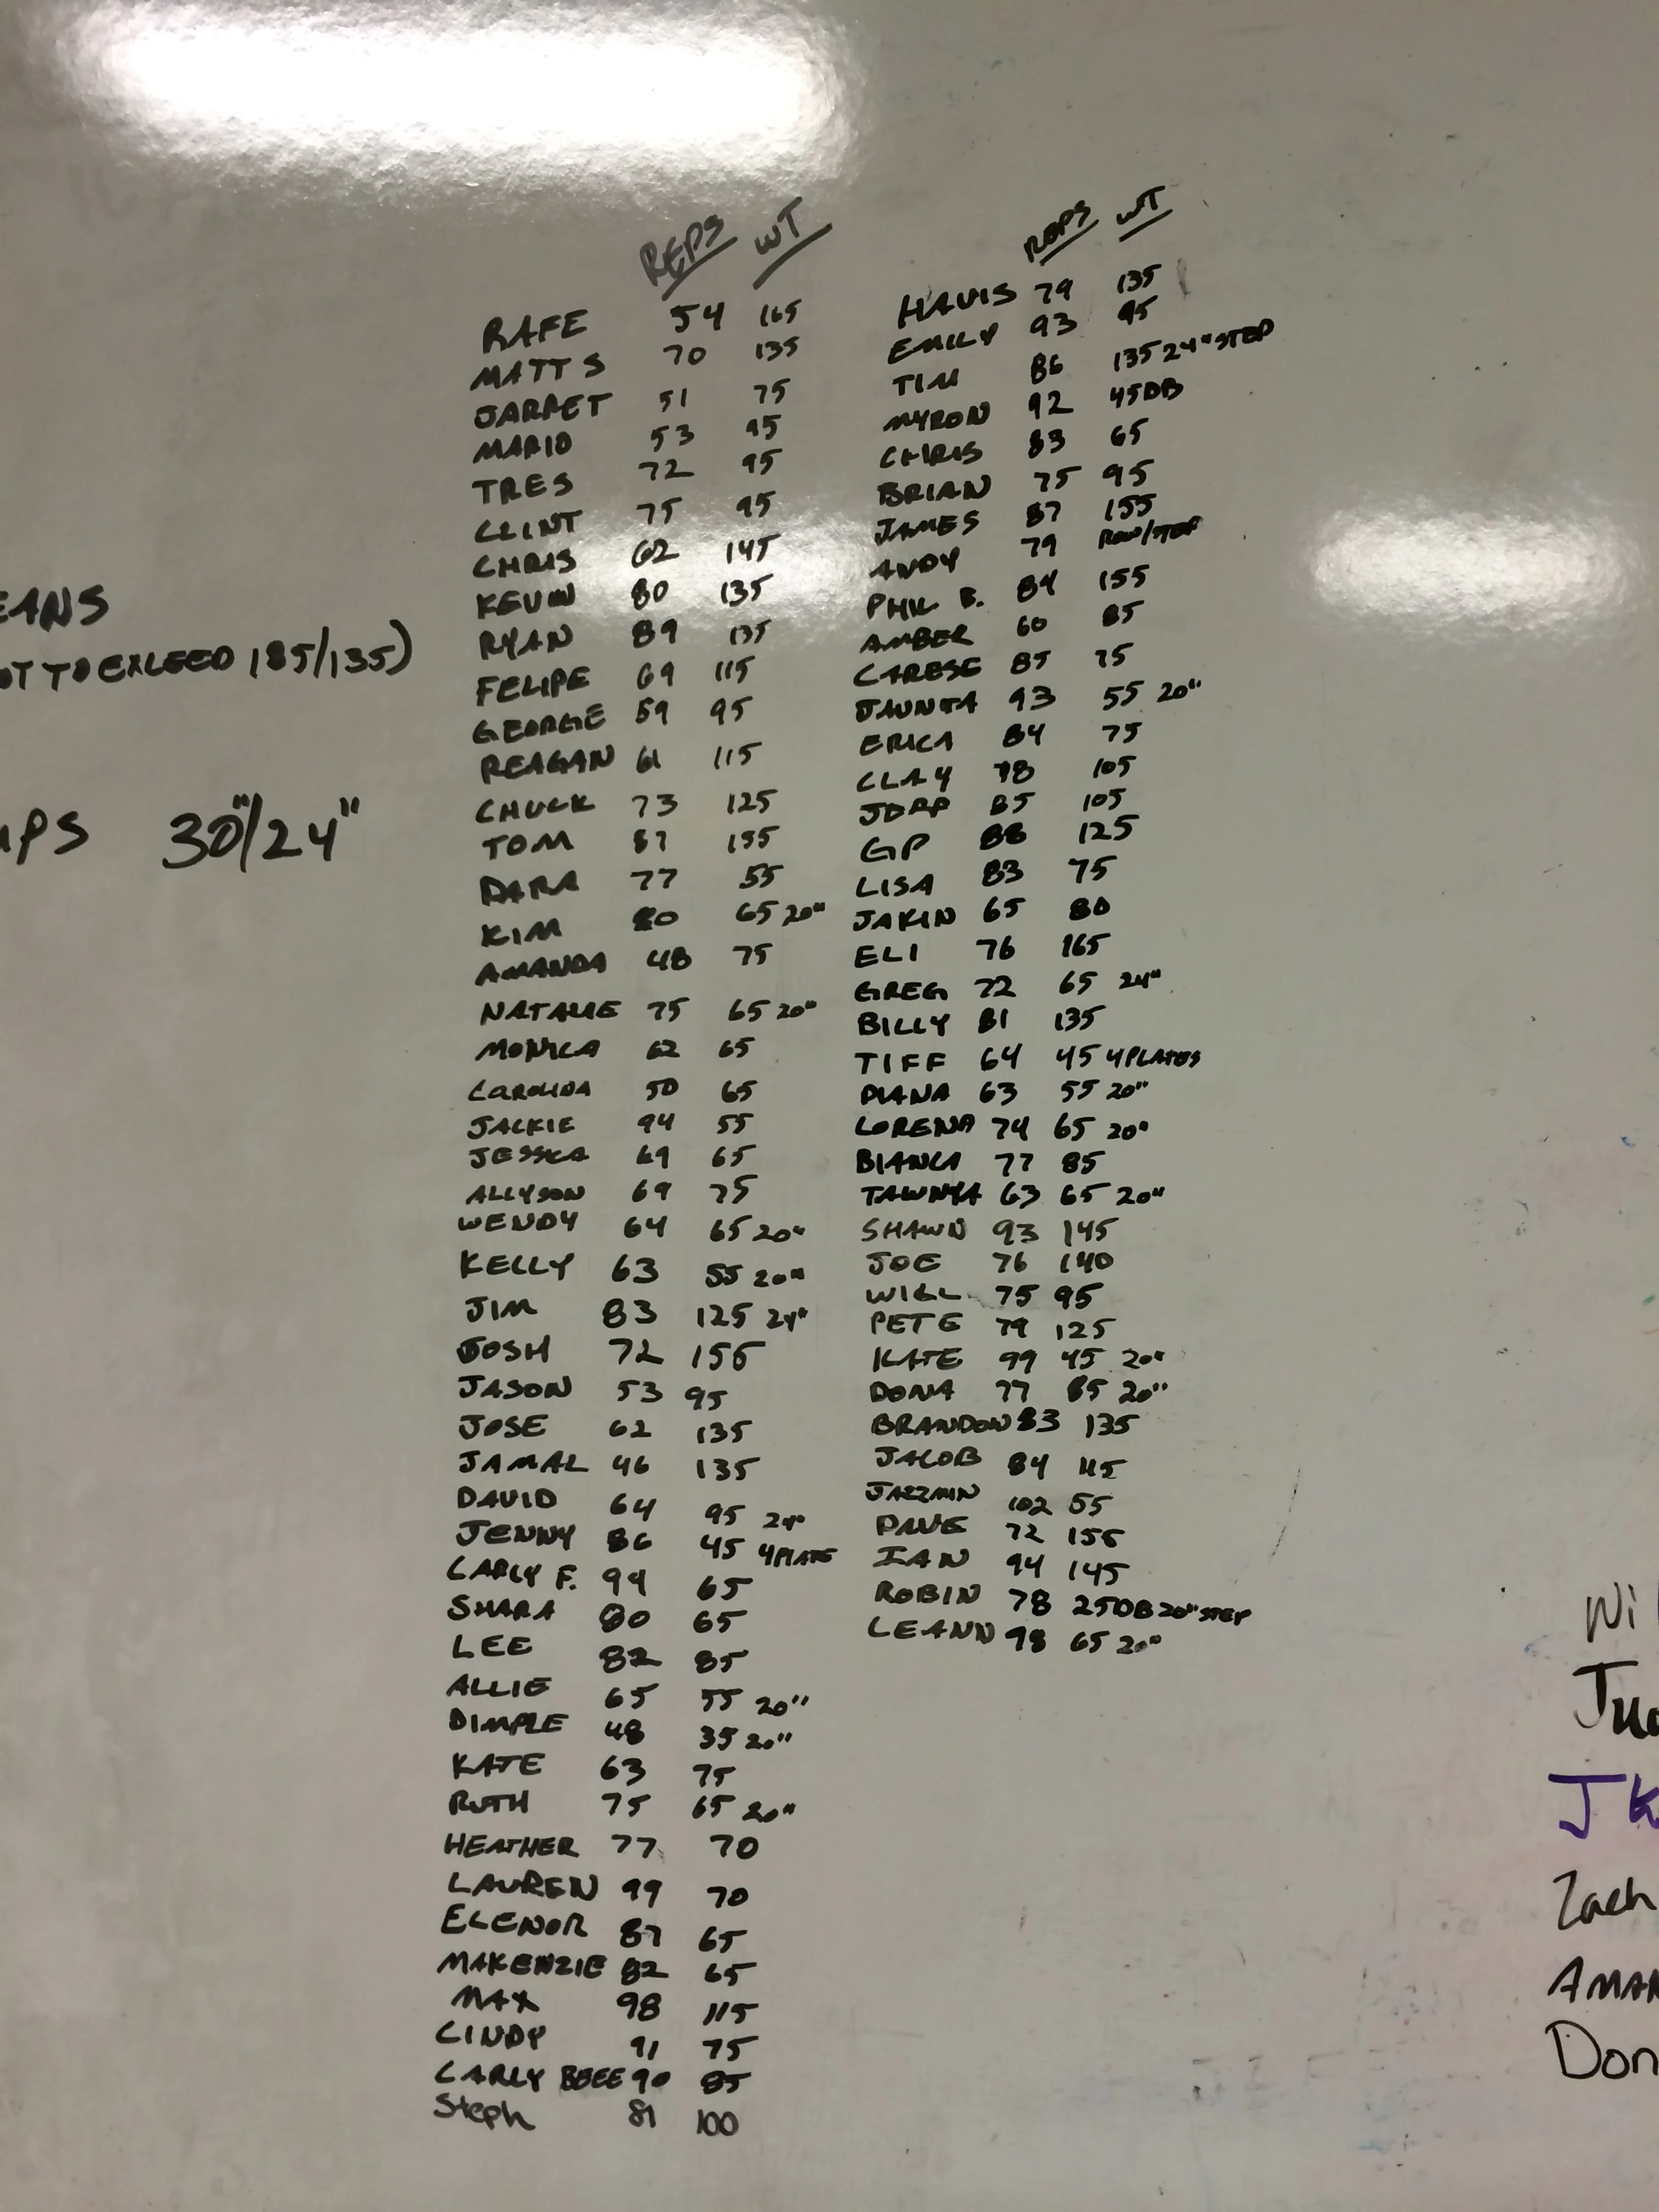 EANS
OT TO EXCEED 185/135)
MPS 30"/24"
REPS WT
RAFE 54 165
MATT S 70 135
JARRET 51 75
MARIO 53 95
TRES 72 95
CLINT 75 95
CHRIS 62 145
KEVIN 80 135
RYAN 89 135
FELIPE 69 115
GEORGE 59 95
REAGAN 61 115
CHUCK 73 125
TOM 87 135
DARA 77 55
KIM 80 65 20"
AMANDA 48 75
NATALIE 75 65 20"
MONICA 62 65
CAROLINA 50 65
JACKIE 94 55
JESSICA 69 65
ALLYSON 69 75
WENDY 64 65 20"
KELLY 63 55 20"
JIM 83 125 24"
JOSH 72 155
JASON 53 95
JOSE 62 135
JAMAL 46 135
DAVID 64 95 24"
JENNY 86 45 4PLATE
CARLY F. 99 65
SHARA 80 65
LEE 82 85
ALLIE 65 55 20"
DIMPLE 48 35 20"
KATE 63 75
RUTH 75 65 20"
HEATHER 77 70
LAUREN 99 70
ELENOR 87 65
MAKENZIE 82 65
MAX 98 115
CINDY 91 75
CARLY BEEE 90 85
Steph 81 100
REPS WT
HAVIS 79 135
EMILY 93 95
TIM 86 135 24" STEP
MYRON 92 45DB
CHRIS 83 65
BRIAN 75 95
JAMES 87 155
ANDY 79 ROW/STEP
PHIL B. 84 155
AMBER 60 85
CARESE 85 75
JAUNTA 93 55 20"
ERICA 84 75
CLAY 78 105
JORP 85 105
GP 88 125
LISA 83 75
JAKIN 65 80
ELI 76 165
GREG 72 65 24"
BILLY 81 135
TIFF 64 45 4PLATES
DIANA 63 55 20"
LORENA 74 65 20"
BIANCA 77 85
TAWNYA 63 65 20"
SHAWN 93 145
JOE 76 140
WILL 75 95
PETE 79 125
KATE 99 45 20"
DONA 77 85 20"
BRANDON 83 135
JACOB 84 115
JAZZMIN 102 55
DAVE 72 155
IAN 94 145
ROBIN 78 25DB 20" STEP
LEANN 98 65 20"
Zach